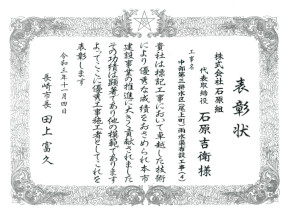 表彰状
株式会社石原組
代表取締役 石原吉衛様
工事名
中部第三排水区尾上町(一)雨水渠布設工事(4)
貴社は標記工事において卓越した技術
により優秀な成績をおさめられ本市
建設事業の推進に大きく貢献されました
その功績は顕著であり他の模範であります
よってここに優秀工事施工者としてこれを
表彰します
令和三年十一月四日
長崎市長 田上富久